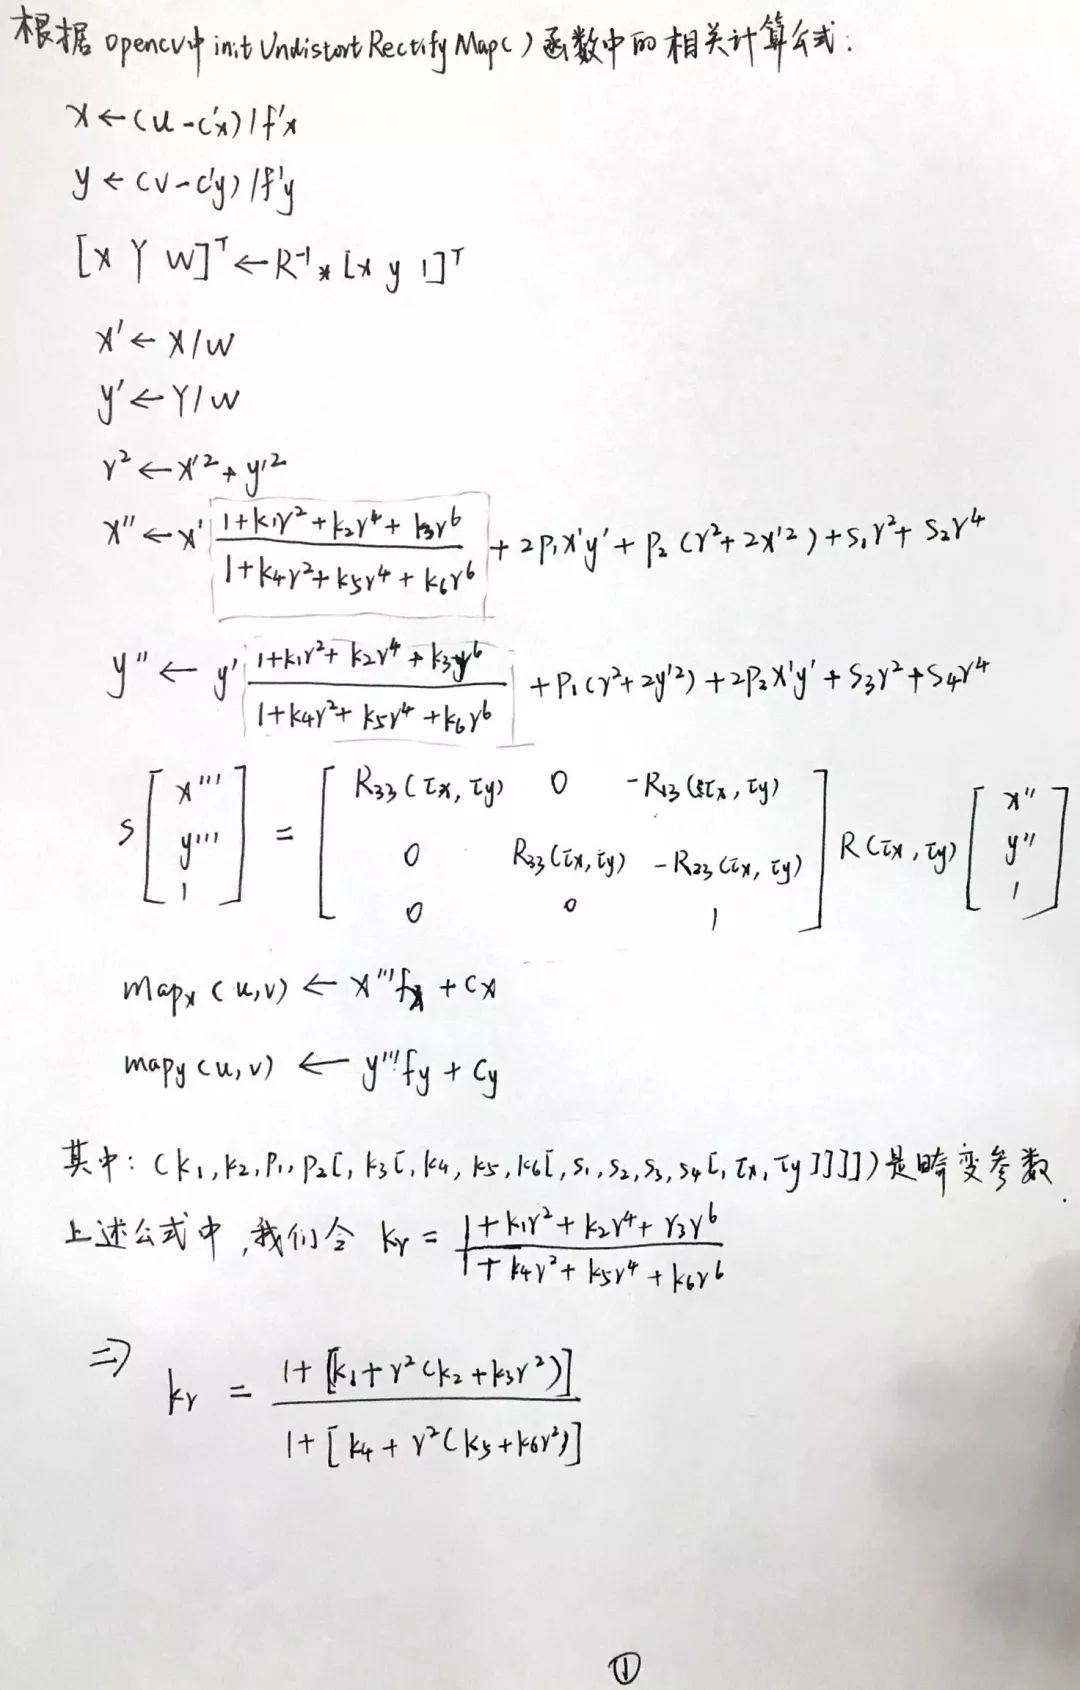 根据 opencv中 init Undistort Rectify Map( ) 函数中的相关计算公式:
x ← (u - c'x) / f'x
y ← (v - c'y) / f'y
[X Y W]ᵀ ← R⁻¹ * [x y 1]ᵀ
x' ← X/W
y' ← Y/W
r² ← x'² + y'²
x'' ← x' (1+k₁r²+k₂r⁴+k₃r⁶)/(1+k₄r²+k₅r⁴+k₆r⁶) + 2p₁x'y' + p₂(r²+2x'²) + s₁r² + s₂r⁴
y'' ← y' (1+k₁r²+k₂r⁴+k₃r⁶)/(1+k₄r²+k₅r⁴+k₆r⁶) + p₁(r²+2y'²) + 2p₂x'y' + s₃r² + s₄r⁴
s [x''' y''' 1] = [R₃₃(τx, τy) 0 -R₁₃(τx, τy); 0 R₃₃(τx, τy) -R₂₃(τx, τy); 0 0 1] R(τx, τy) [x'' y'' 1]
mapx (u,v) ← x'''fx + cx
mapy (u,v) ← y'''fy + cy
其中: (k₁, k₂, p₁, p₂[, k₃[, k₄, k₅, k₆[, s₁, s₂, s₃, s₄[, τx, τy]]]]) 是畸变参数.
上述公式中, 我们令 kr = (1+k₁r²+k₂r⁴+r₃r⁶)/(1+k₄r²+k₅r⁴+k₆r⁶)
⇒ kr = (1+[k₁+r²(k₂+k₃r²)])/(1+[k₄+r²(k₅+k₆r²)])
①